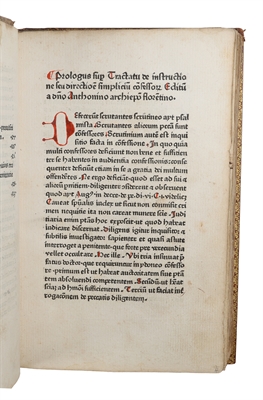 Prologus sup Tractatu de instructio
ne seu directiõe simpliciũ cõfessoꝝ. Editũ
a dño Anthonino archiepõ florẽtino.
Defecerũt scrutantes scrutineo ayt psal
mista Scrutantes alioꝝ pctã sunt
cõfessores Scrutinium autẽ est inqui
sitio facta in cõfessione. In quo quia
multi cõfessores deficiunt non bene et sufficien
ter se habentes in audientia confessionis: conse
quenter deficiunt etiam in se a gratia dei multum
offendẽtes. Ne ergo deficiãt quod esset ad sui et
alioꝝ
diligenter
et obseruent
quod ayt Aug9 in decre. de
Caueat
iudex ut sicut non cõmisit cri
men nequitie ita non careat munere
Judi
ciaria enim
hoc exposcit ut quod habeat
iudicare discernat. Diligens igitur inquisitor et
subtilis inuestigator sapienter et quasi astute
interroget a penitente quod forte pre verecundia
vellet occultare. Hec ille. Ubi tria insinuat
fatus doctor que requiruntur in
cõfesso
re. primum est ut habeat auctoritatem siue ptãtem
absoluendi competentem. Secũdũ ut
sciẽ
tia; ad
sufficientem. Terciũ ut faciat inter
rogacõnem de peccatis diligentem.